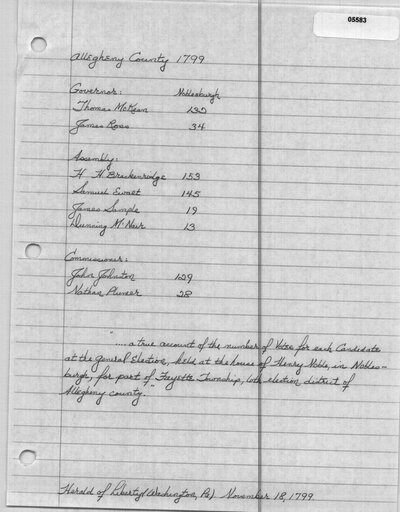 05583
Allegheny County 1799
Governor: Noblesburgh
Thomas McKean 132
James Ross 34
Assembly:
H H Brackenridge 153
Samuel Ewalt 145
James Sample 19
Dunning McNair 13
Commissioner:
John Johnston 129
Nathan Plumer 28
"....a true account of the number of Votes for each Candidate
at the general Election, held at the house of Henry Noble, in Nobles-
burgh, for part of Fayette Township, 6th election district of
Allegheny county."
Herald of Liberty (Washington, Pa). November 18, 1799.